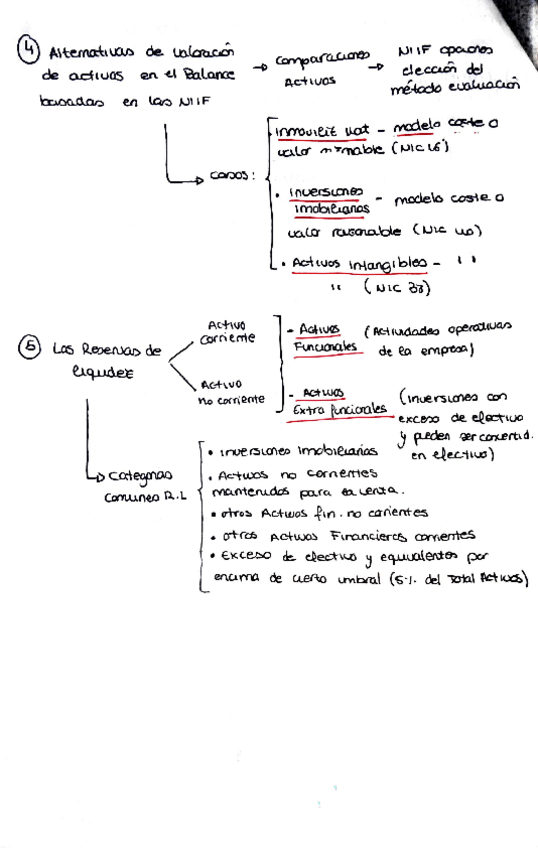 ④ Alternativas de valoración
de activos en el Balance
basadas en las NIIF
→ Comparaciones
Activos
→ NIIF opciones
elección del
método evaluación
→ Casos:
Inmoviliz Mat - modelo coste o
valor razonable (NIC 16)
• Inversiones
Imobiliarias - modelo coste o
valor rasonable (NIC 40)
• Activos Intangibles - ' '
" (NIC 38)
⑤ Las Reservas de
liquidez
Activo
corriente
Activo
no corriente
- Activos
Funcionales (Actividades operativas
de la empresa)
- Activos
Extra funcionales (Inversiones con
exceso de efectivo
y pueden ser convertid.
en efectivo)
→ Categorias
Comunes R.L
• Inversiones Imobiliarias
• Activos no corrientes
mantenidos para la venta.
• otros Activos fin. no corrientes
• otros Activos Financieros corrientes
• Exceso de efectivo y equivalentes por
encima de cierto umbral (5% del Total Activos)